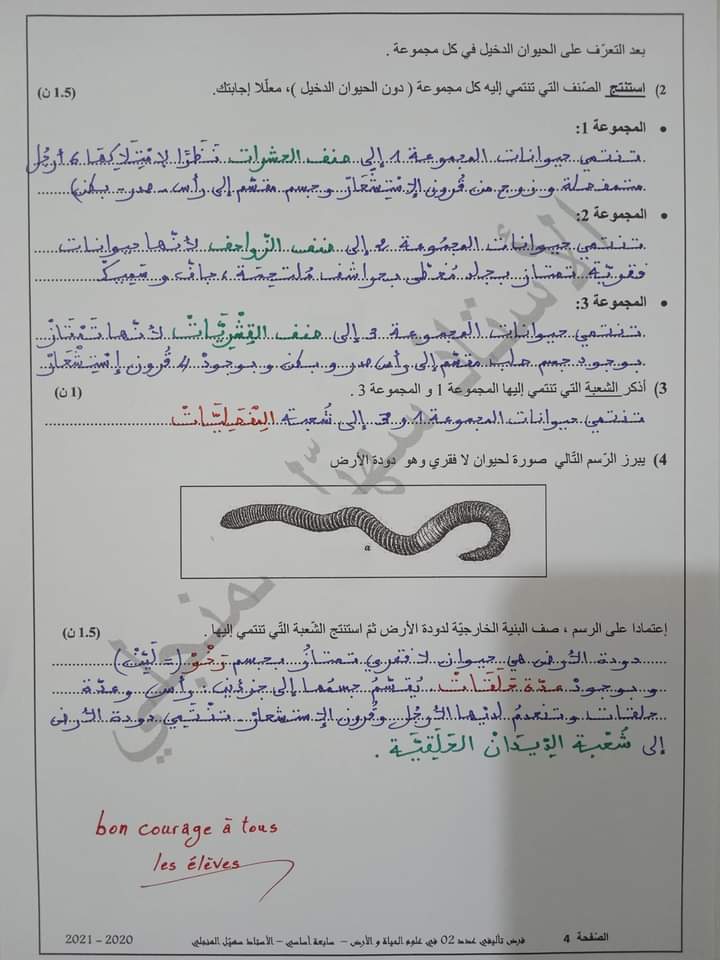 بعد التعرّف على الحيوان الدخيل في كل مجموعة .
2) إستنتج الصّنف التي تنتمي إليه كل مجموعة ( دون الحيوان الدخيل )، معلّلا إجابتك. (1.5 ن)
• المجموعة 1:
تنتمي حيوانات المجموعة 1 إلى صنف الحشرات نَظَرًا لإمتلاكها 6 أرجُل
متمفصلة و زوج من قُرون الإستِشعار و جسم مقسّم إلى رأس - صدر - بطن)
• المجموعة 2:
تنتمي حيوانات المجمُوعة 2 إلى صنف الزّواحف لأنّها حيوانات
فقريّة تمتاز بجلد مُغطّى بحراشف مُلتحِمَة ، جافّ و سَمِيك
• المجموعة 3:
تنتمي حيوانات المجموعة 3 إلى صنف القِشْرِيَّات لأنّها تَمْتَازُ
بوجود جسم صلب مقسّم إلى رأس صدر و بطن و بوجودْ 4 قُرون إسْتِشْعَارْ
3) أذكر الشعبة التي تنتمي إليها المجموعة 1 و المجموعة 3 . (1 ن)
تنتمي حيوانات المجموعة 1 و 3 إلى شُعبة المِفْصَلِيَّاتْ
4) يبرز الرّسم التّالي صورة لحيوان لا فقري وهو دودة الأرض
a
إعتمادا على الرسم ، صف البنية الخارجيّة لدودة الأرض ثمّ استنتج الشّعبة التّي تنتمي إليها . (1.5 ن)
دودة الأرض هي حيوان لا فقري تمتازُ بجسم رَخْو (= لَيِّنْ)
و بوجودْ عدّة حَلَقَاتْ يُقسّمُ جسمُها إلى جزئين : رأس و عدّة
حلقات و تنعدمُ لديها الأرجُل و قُرون الإستشعار. تنْتَمِي دودة الأرض
إلى شُعْبة الدِّيدَانْ الحَلَقِيَّة .
bon courage à tous
les élèves
الأستاذ سهيّل المنجلي
الصّفحة 4 فرض تأليفي عدد 02 في علوم الحياة و الأرض – سابعة أساسي – الأستاذ سهيّل المنجلي 2020 – 2021